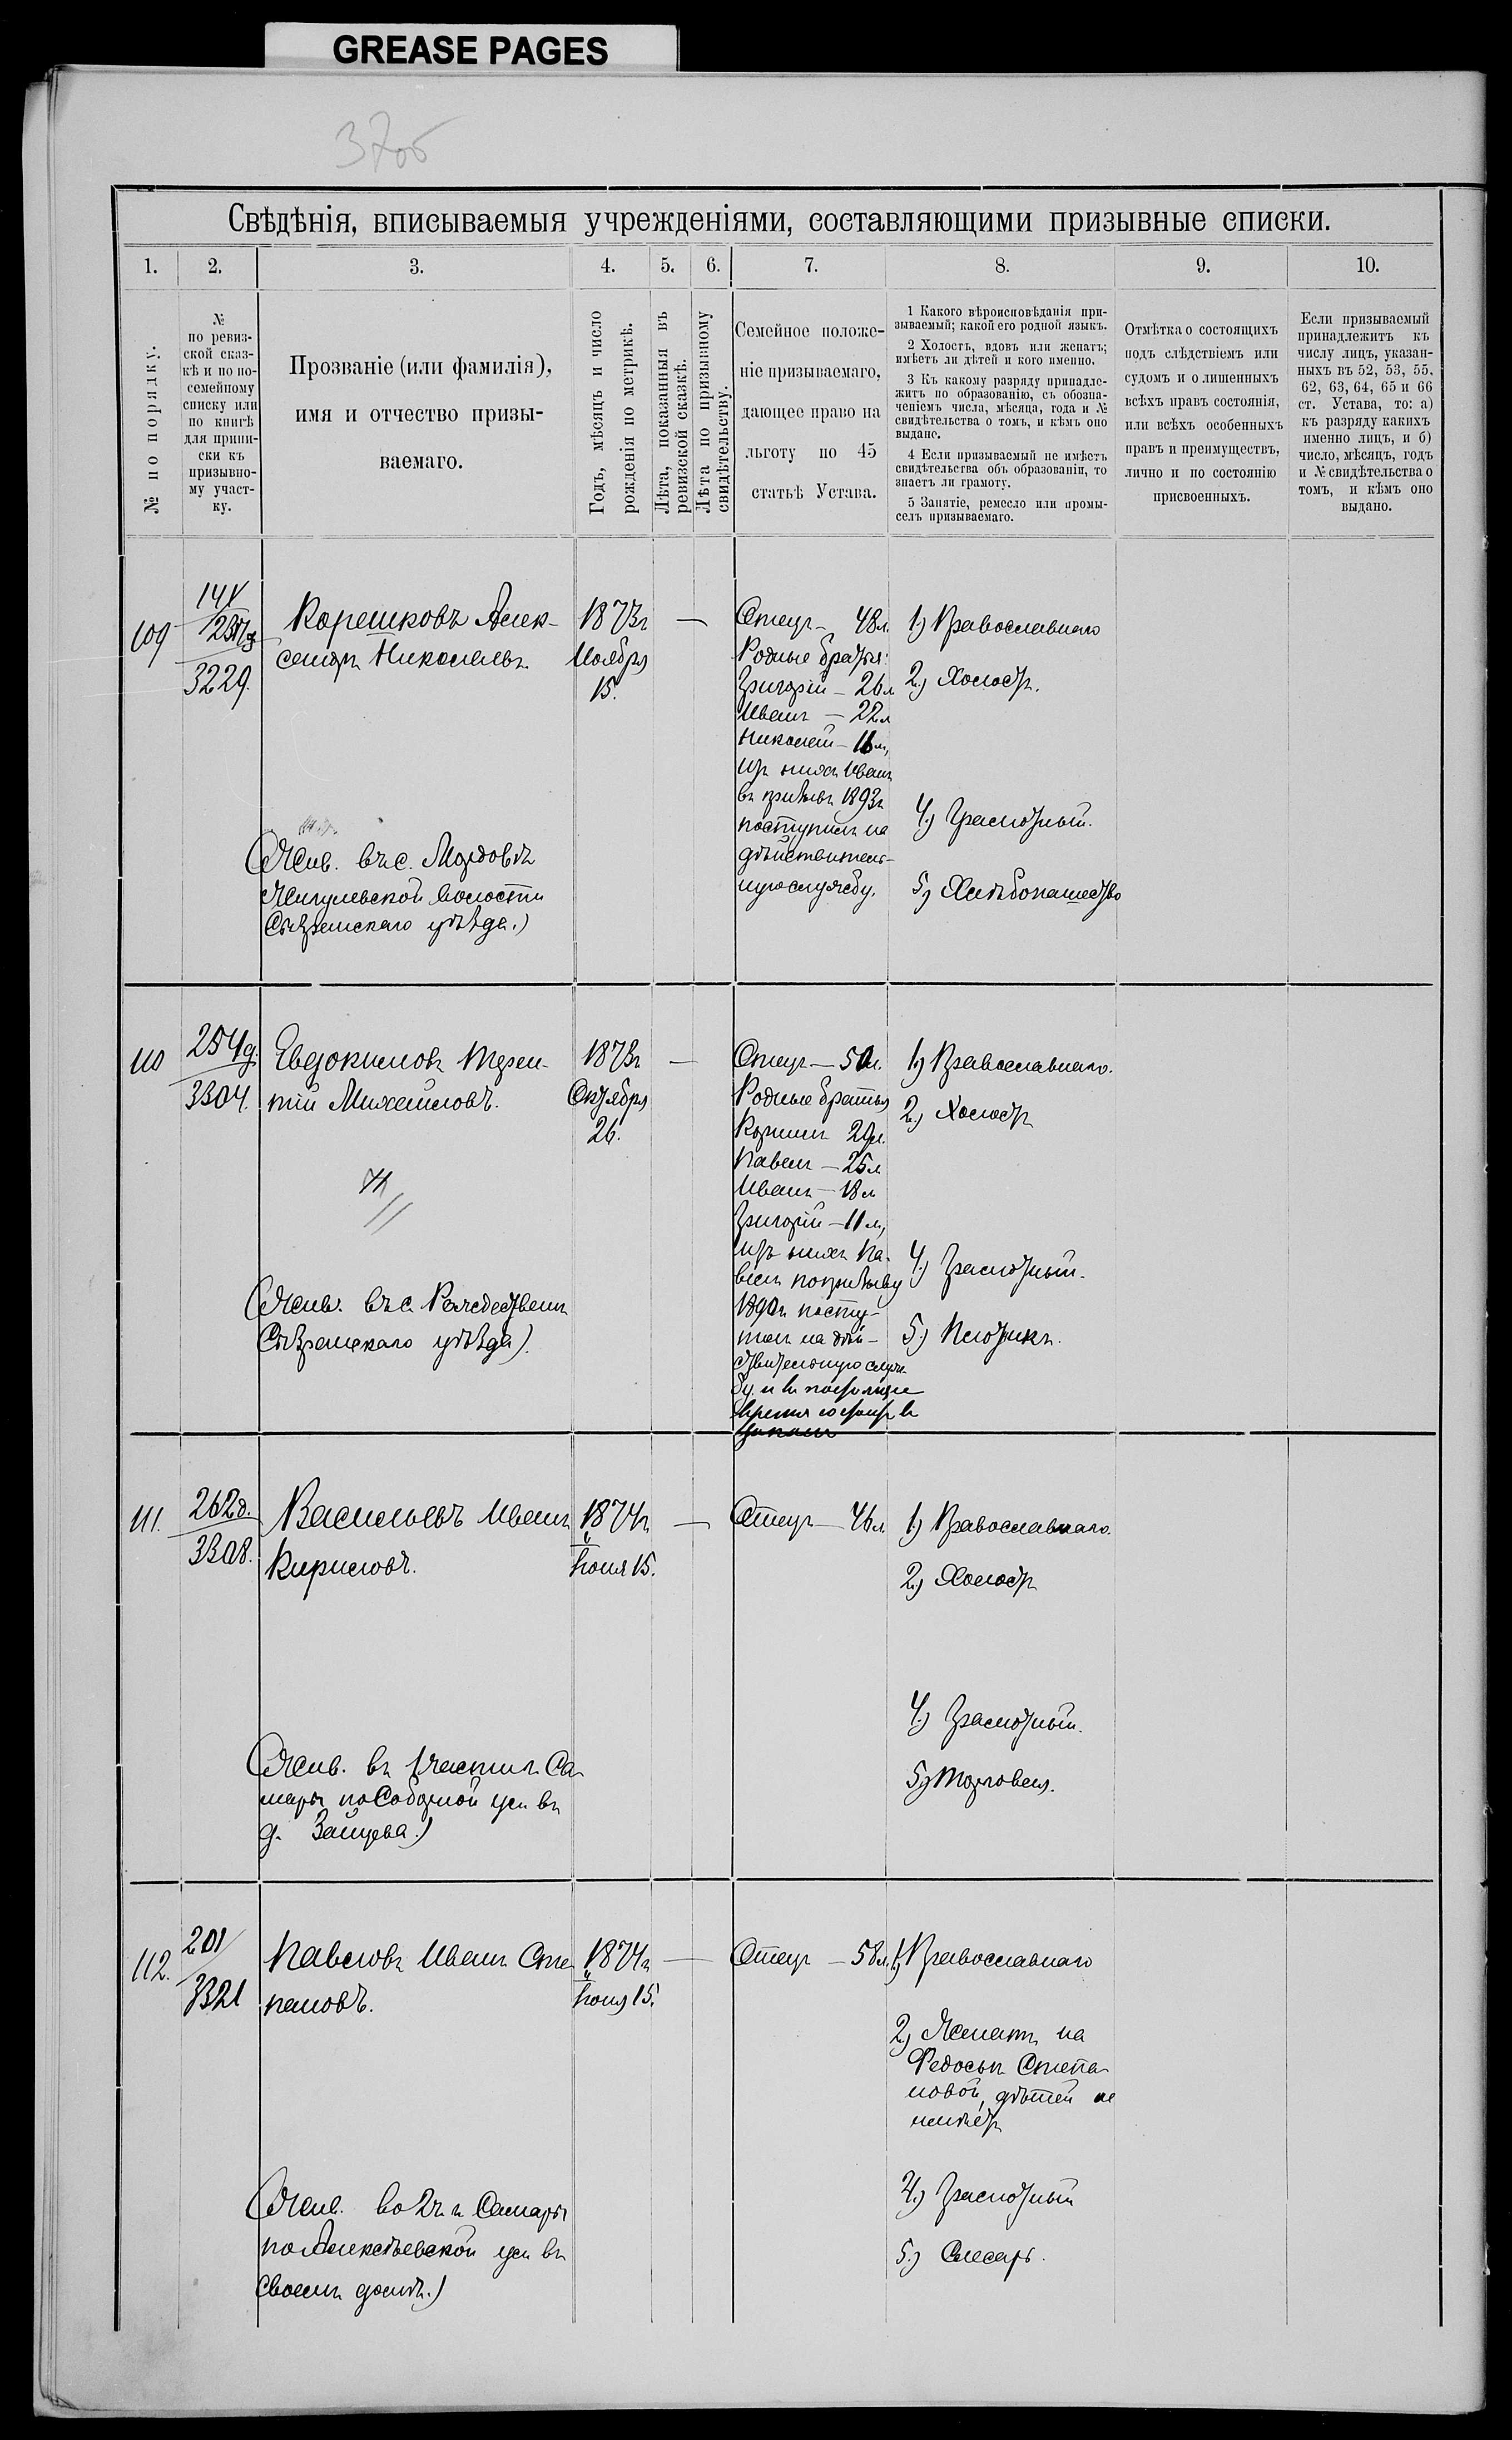 GREASE PAGES
37об
Свѣдѣнія, вписываемыя учрежденіями, составляющими призывные списки.
1. 2. 3. 4. 5. 6. 7. 8. 9. 10.
№ по порядку.
№
по ревиз-
ской сказ-
кѣ и по по-
семейному
списку или
по книгѣ
для припи-
ски къ
призывно-
му участ-
ку.
Прозваніе (или фамилія),
имя и отчество призы-
ваемаго.
Годъ, мѣсяцъ и число
рожденія по метрикѣ.
Лѣта, показанныя въ
ревизской сказкѣ.
Лѣта по призывному
свидѣтельству.
Семейное положе-
ніе призываемаго,
дающее право на
льготу по 45
статьѣ Устава.
1 Какого вѣроисповѣданія при-
зываемый; какой его родной языкъ.
2 Холостъ, вдовъ или женатъ;
имѣетъ ли дѣтей и кого именно.
3 Къ какому разряду принадле-
житъ по образованію, съ обозна-
ченіемъ числа, мѣсяца, года и №
свидѣтельства о томъ, и кѣмъ оно
выдано.
4 Если призываемый не имѣетъ
свидѣтельства объ образованіи, то
знаетъ ли грамоту.
5 Занятіе, ремесло или промы-
селъ призываемаго.
Отмѣтка о состоящихъ
подъ слѣдствіемъ или
судомъ и о лишенныхъ
всѣхъ правъ состоянія,
или всѣхъ особенныхъ
правъ и преимуществъ,
лично и по состоянію
присвоенныхъ.
Если призываемый
принадлежитъ къ
числу лицъ, указан-
ныхъ въ 52, 53, 55,
62, 63, 64, 65 и 66
ст. Устава, то: а)
къ разряду какихъ
именно лицъ, и б)
число, мѣсяцъ, годъ
и № свидѣтельства о
томъ, и кѣмъ оно
выдано.
109
3229.
Корешковъ Алек-
сандръ Николаевъ.
(Жив. въ с. Мордовѣ
Жигулевской волости
Сызранскаго уѣзда.)
1873г
Ноября
15.
—
Отецъ — 48л.
Родные братья:
Григорій — 26л
Иванъ — 22л
Николай — 16л,
изъ нихъ Иванъ
въ призывъ 1893г
поступилъ на
дѣйствитель-
ную службу.
1) Православнаго
2) Холостъ.
4) Грамотный.
5) Хлѣбопашество
110
254д.
3304.
Евдокимовъ Терен-
тій Михайловъ.
(Жив. въ с. Рождествени
Сызранскаго уѣзда).
1873г
Октября
26.
—
Отецъ — 50л.
Родные братья
Корнилъ 29л.
Павелъ — 25л
Иванъ — 18л
Григорій — 11л,
изъ нихъ Па-
велъ по призыву
1890г посту-
пилъ на дѣй-
ствительную служ-
бу и въ настоящее
время состоитъ въ
1) Православнаго.
2) Холостъ
4) Грамотный.
5) Плотникъ.
111.
262д.
3308.
Васильевъ Иванъ
Кириловъ.
(Жив. въ 1 части г. Са-
мары по Соборной ул. въ
д. Зайцева.)
1874г
Іюня 15.
—
Отецъ — 46л
1) Православнаго.
2) Холостъ
4) Грамотный.
5) Торговля.
112.
201
3321
Павловъ Иванъ Сте-
пановъ.
(Жив. во 2 ч. г. Самары
по Алексѣевской ул. въ
своемъ домѣ.)
1874г
Іюня 15.
—
Отецъ — 58л.
1) Православнаго
2) Женатъ на
Федосьи Степа-
новой, дѣтей не
имѣетъ
4) Грамотный
5) Слесарь.